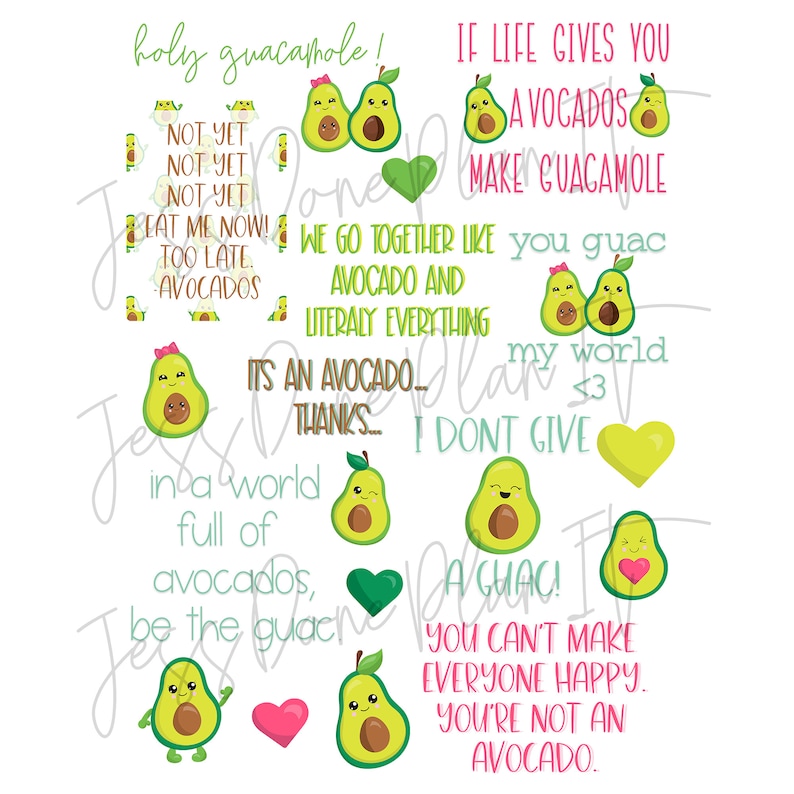 holy guacamole!
IF LIFE GIVES YOU
AVOCADOS
MAKE GUAGAMOLE
NOT YET
NOT YET
NOT YET
EAT ME NOW!
TOO LATE.
-AVOCADOS
WE GO TOGETHER LIKE
AVOCADO AND
LITERALY EVERYTHING
you guac
my world
<3
ITS AN AVOCADO...
THANKS...
I DONT GIVE
A GUAC!
in a world
full of
avocados,
be the guac.
YOU CAN'T MAKE
EVERYONE HAPPY.
YOU'RE NOT AN
AVOCADO.
Jess Done Plan It
Jess Done Plan It
Jess Done Plan It